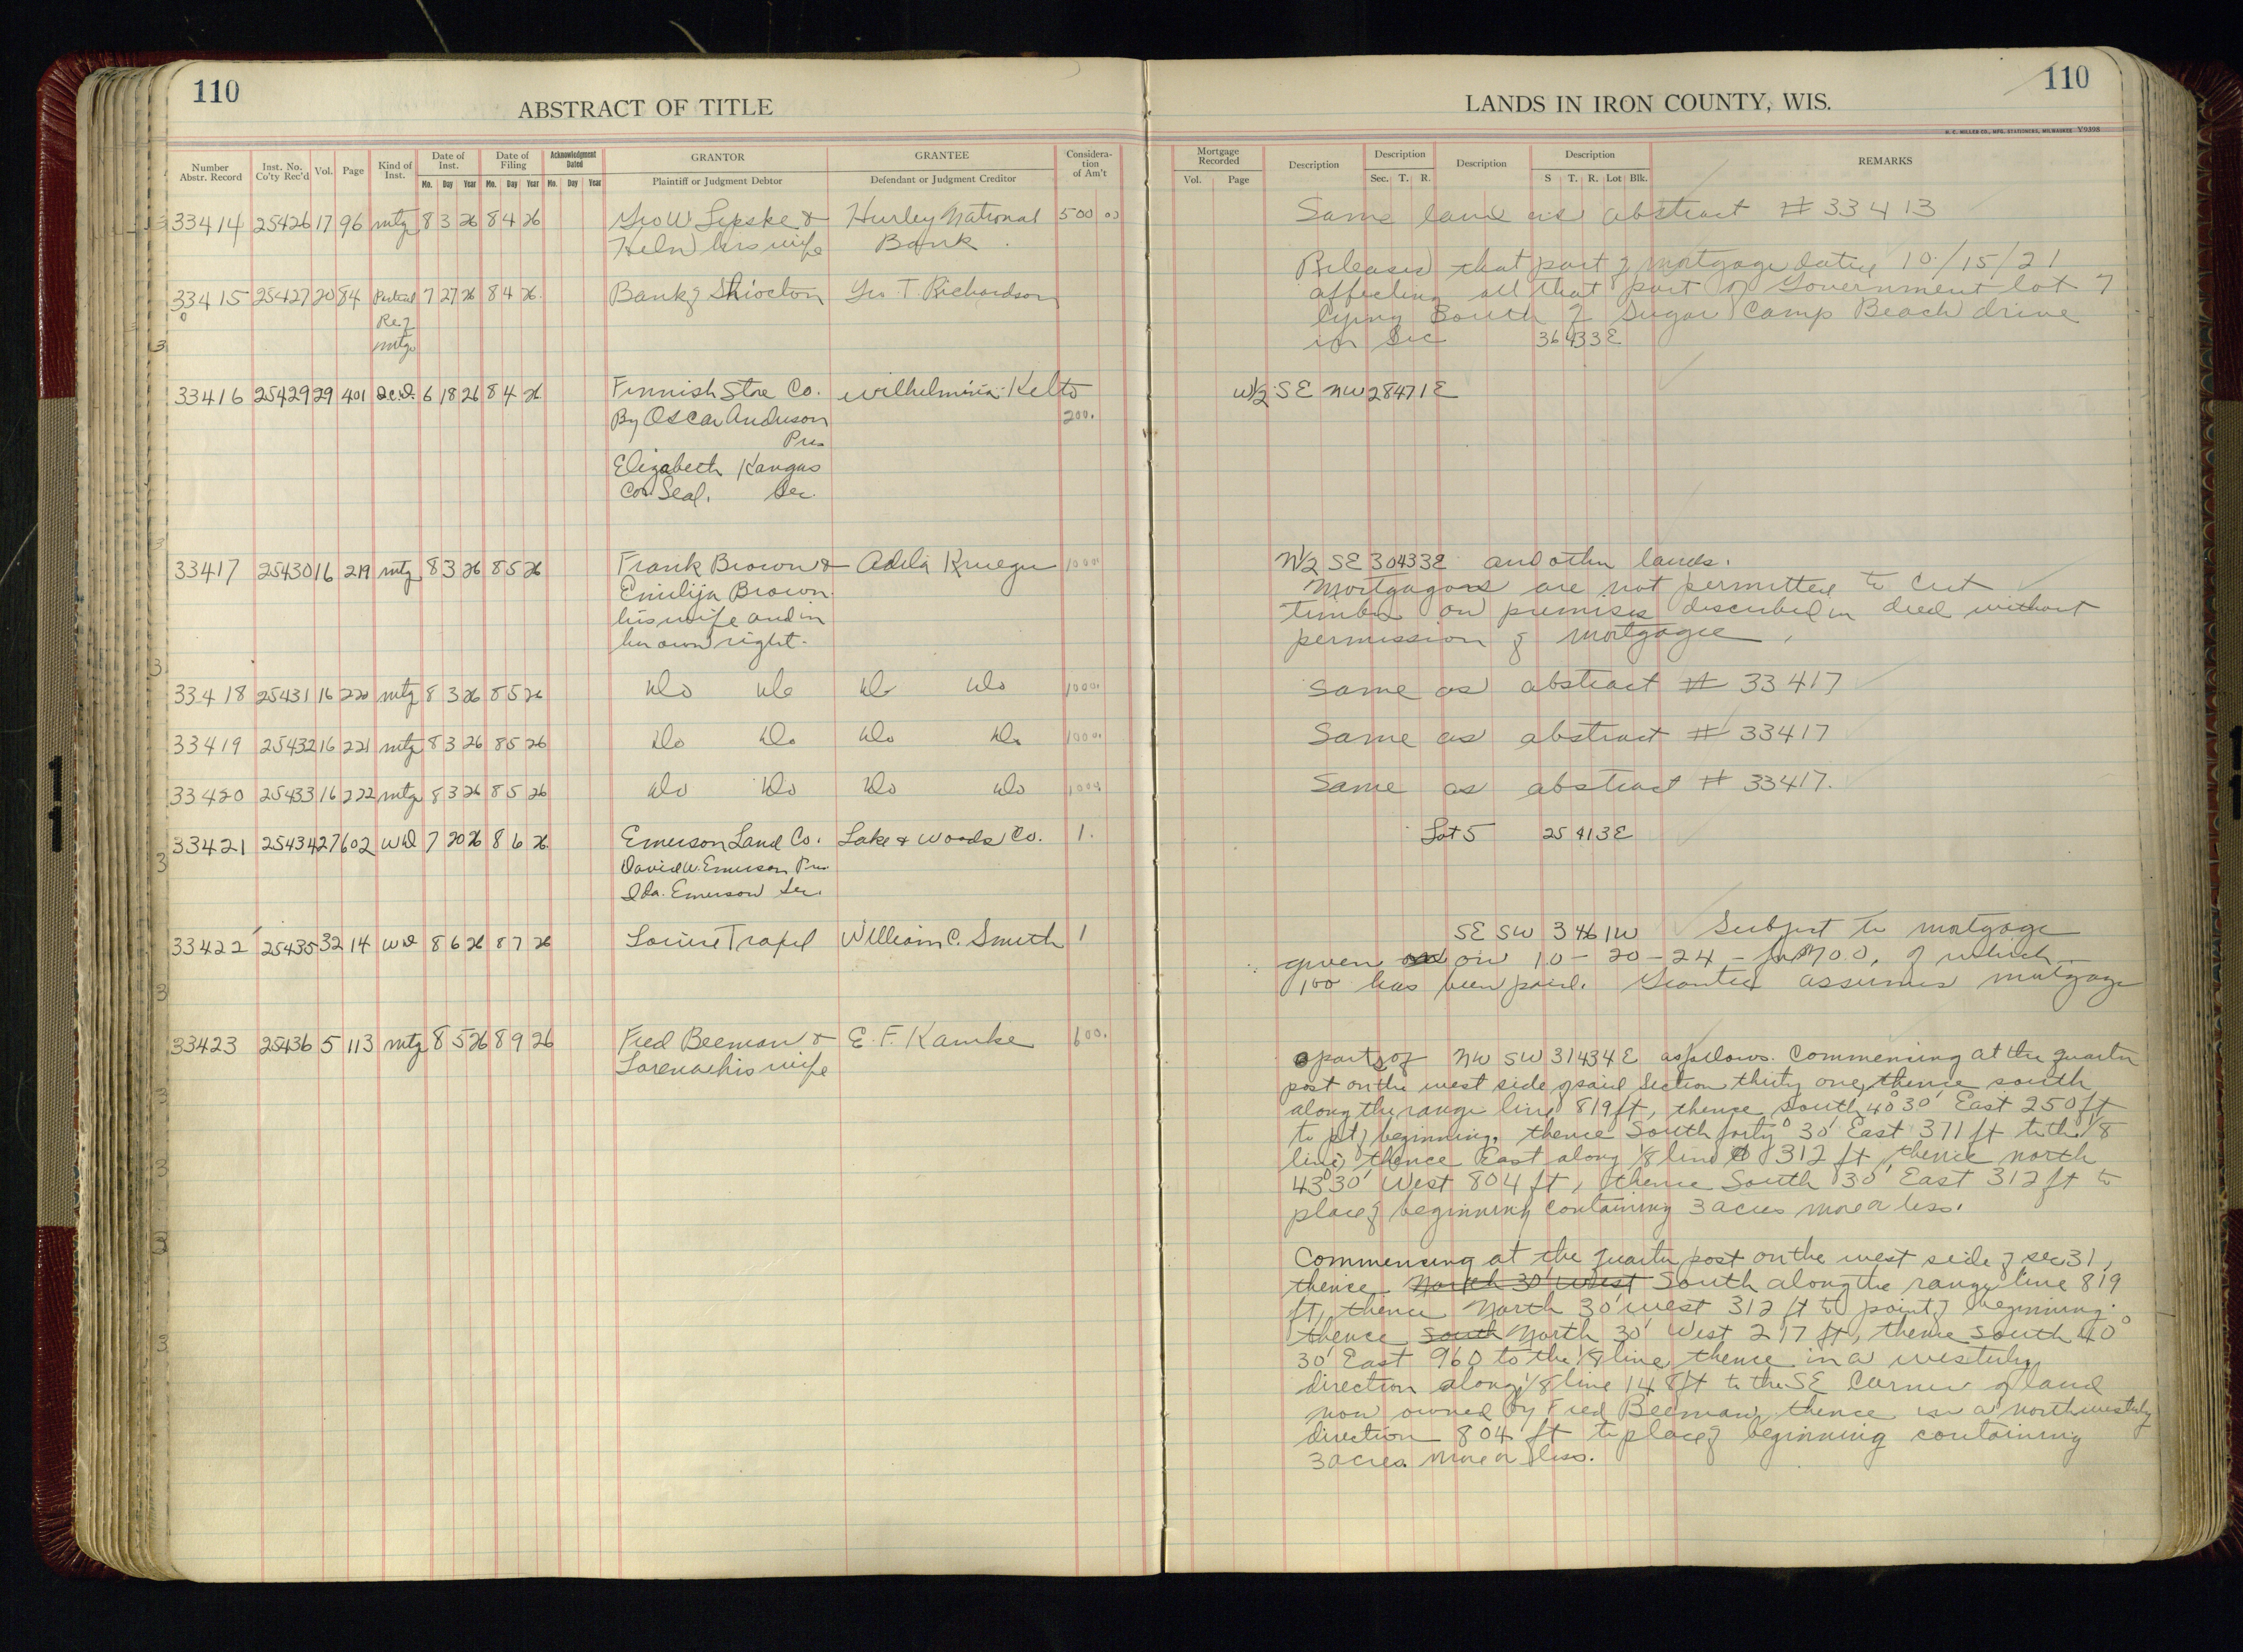 110
ABSTRACT OF TITLE
LANDS IN IRON COUNTY, WIS.
110
H. C. MILLER CO., MFG. STATIONERS, MILWAUKEE V9398
Number Abstr. Record Inst. No. Co'ty Rec'd Vol. Page Kind of Inst. Date of Inst. Mo. Day Year Date of Filing Mo. Day Year Acknowledgment Dated Mo. Day Year GRANTOR Plaintiff or Judgment Debtor GRANTEE Defendant or Judgment Creditor Considera-tion of Am't
Mortgage Recorded Vol. Page Description Description Sec. T. R. Description Description S T. R. Lot Blk. REMARKS
33414 25426 17 96 mtg 8 3 26 8 4 26 Geo W Lipske & Hurley National 500 00 Same land as abstract # 33413
Helen his wife Bank
33415 25427 20 84 Partial 7 27 26 8 4 26 Bank of Shiocton Geo T Richardson Releases that part of mortgage dated 10/15/21
Re of affecting all that part of Government lot 7
mtg lying South of Sugar Camp Beach drive
in Sec 36 43 3E
33416 25429 29 401 Deed 6 18 26 8 4 26 Finnish Store Co. Wilhelmina Kelto W1/2 SE NW 28 47 1E
By Oscar Anderson 200.
Pres
Elizabeth Kangas
Cor Seal. Sec.
33417 25430 16 219 mtg 8 3 26 8 5 26 Frank Brown & Adela Krueger 1000 N1/2 SE 30 43 3E and other lands.
Emilija Brown Mortgagors are not permitted to cut
his wife and in timber on premises described in deed without
her own right. permission of mortgagee
33418 25431 16 220 mtg 8 3 26 8 5 26 Do Do Do Do 1000. Same as abstract # 33417
33419 25432 16 221 mtg 8 3 26 8 5 26 Do Do Do Do 1000. Same as abstract # 33417
33420 25433 16 222 mtg 8 3 26 8 5 26 Do Do Do Do 1000. Same as abstract # 33417.
33421 25434 27 602 WD 7 20 26 8 6 26 Emerson Land Co. Lake & Woods Co. 1. Lot 5 25 41 3E
David W. Emerson Pres
Ida Emerson Sec.
33422 25435 32 14 WD 8 6 26 8 7 26 Louise William C. Smith 1 SE SW 3 46 1W Subject to mortgage
given on on 10-20-24 - for 700, of which
100 has been paid. Grantee assumes mortgage
33423 25436 5 113 mtg 8 5 26 8 9 26 Fred Beeman & E. F. Kamke 600.
Lorena his wife
parts of NW SW 31 43 4E as follows. Commencing at the quarter
post on the west side of said Section thirty one, thence south
along the range line 819 ft, thence South 40° 30' East 250 ft
to pt of beginning, thence South forty° 30' East 371 ft to the 1/8
line, thence East along 1/8 line 312 ft, thence north
43° 30' West 804 ft, thence South 30' East 312 ft to
place of beginning containing 3 acres more or less.
Commencing at the quarter post on the west side of sec 31,
thence North 30' West South along the range line 819
ft, thence North 30' west 312 ft to point of beginning.
thence South North 30' West 217 ft, thence South 40°
30' East 960 to the 1/8 line, thence in a westerly
direction along 1/8 line 148 ft to the SE Corner of land
now owned by Fred Beeman, thence in a northwesterly
direction 804 ft to place of beginning containing
3 acres more or less.